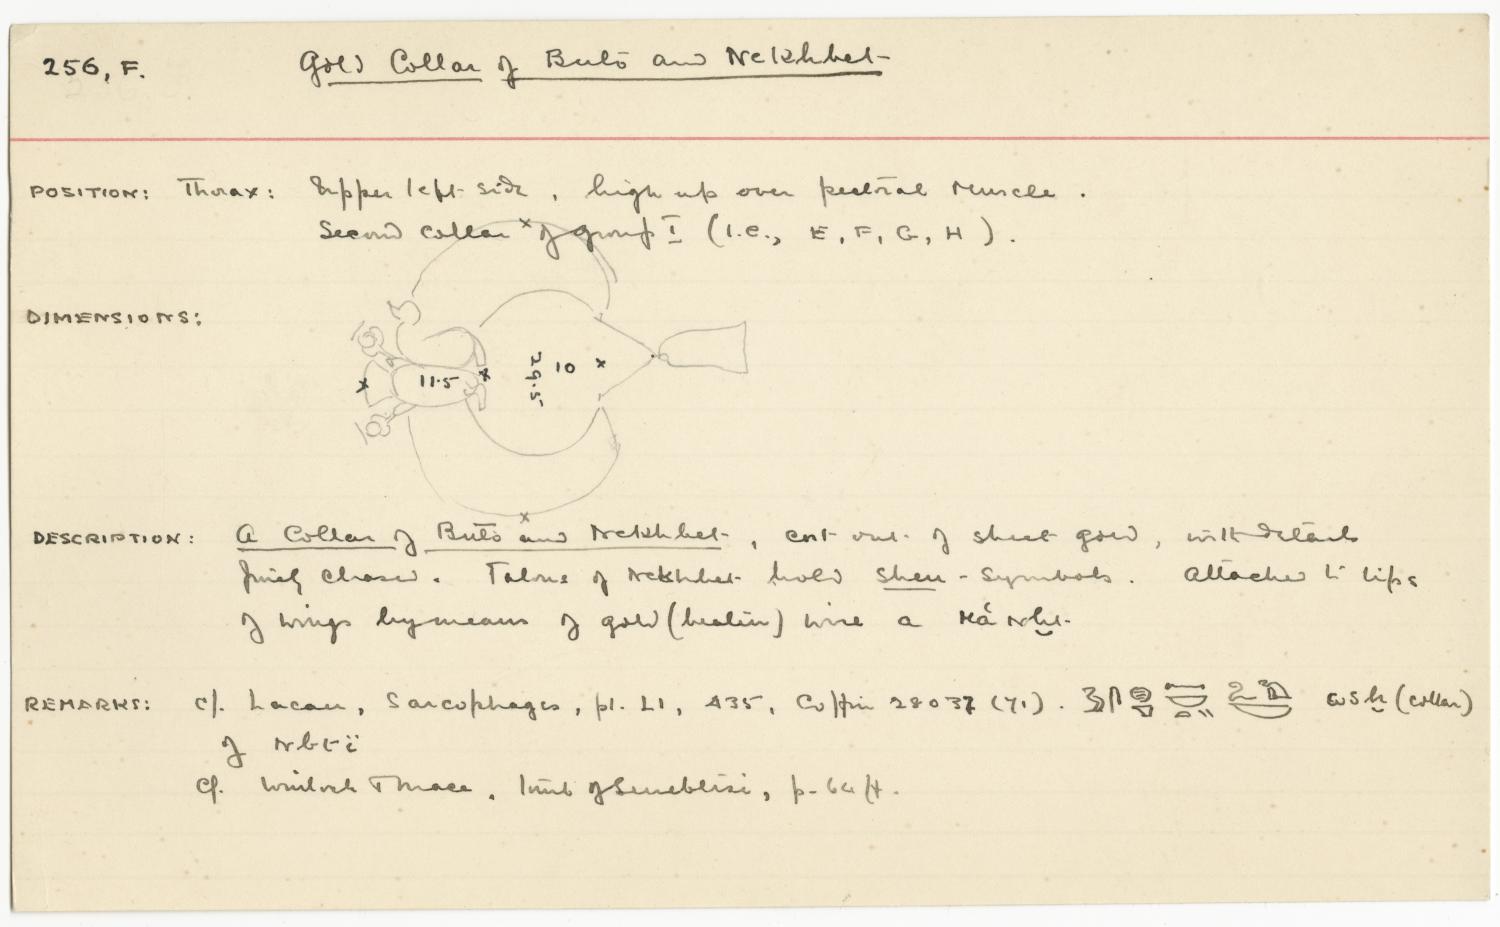 256, F. Gold Collar of Buto and Nekhbet
POSITION: Thorax: Upper left side, high up over pectoral muscle.
Second collar of group I (I.e., E, F, G, H).
DIMENSIONS:
11.5 29.5 10
DESCRIPTION: A Collar of Buto and Nekhbet, cut out of sheet gold, with details
finely chased. Talons of Nekhbet hold Shen-symbols. Attached to tips
of wings by means of gold (beaten) wire a
REMARKS: cf. Lacau, Sarcophages, pl. LI, 435, Coffin 28037 (71). wsḫ (collar)
of Nbtï
cf. Winlock & Mace, Tomb of Senebtisi, p. 64 ff.